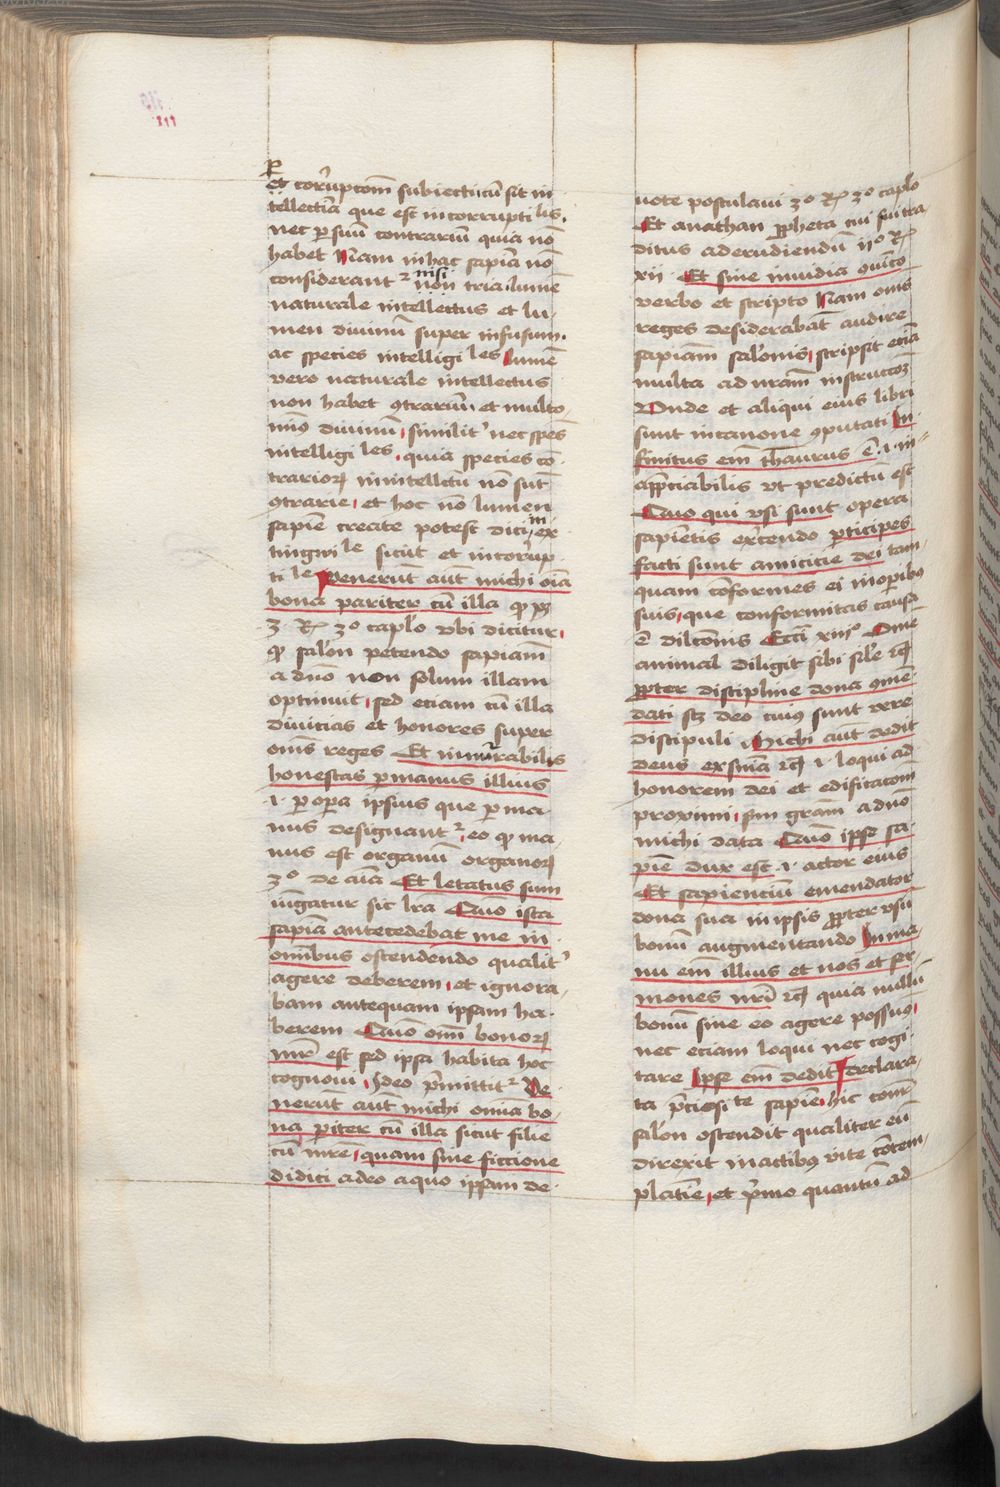 et coru̅pcom̅ subiecti cu̅ sit in
tellectia̅ que est incorrupti lis.
nec per suu̅ contrariu̅ quia no̅
habet Nam in hac sapia̅ no̅
considerant᷑ nisi non tria lume̅
naturale intellectus et lu-
men diuinu̅ super infusum.
ac species intelligi les lume̅
vero naturale intellectus
non habet ꝯtrariu̅ et multo
min9 diuinu̅ similit᷑ nec spe̅s
intelligi les, quia species co̅-
trarioꝝ in intellectu̅ no̅ su̅t
ꝯtrarie, et hoc no̅ lumen
sapie̅ create potest dici in ex
tingwi le sicut et incoru̅p
ti le Venerūt aūt michi oīa
bona pariter cū illa ꝙ
3 Rͫ 3º caplo vbi dicitur,
ꝙ salo̅n petendo sapiam̅
a dno̅ non solum illam
optinuit, sed eciam cu̅ illa
diuicias et honores super
om̅s reges Et innūrabilis
honestas per manus illius
.i. per opera ipsius que per ma-
nus designant᷑, eo ꝙ ma
nus est organu̅ organoꝝ
3º de aīa Et letatus sum
iu̅gatur sic lra Quo̅ ista
sapia̅ antecedebat me in
om̅ibus ostendendo qualit᷑
agere deberem, et ignora-
bam antequam ipsam ha-
berem Quo̅ om̅ bonoꝝ
mr̅ est sed ipsa habita hoc
cognoui, Ideo p̅mittit᷑ Ve
nerūt aūt michi omīa bo-
na pariter cū illa sicut filie
cu̅ mr̅e, quam sine ficcione
didici a deo a quo ipsam de-
uote postulaui 3º Rͫ 3º caplo
Et a nathan ꝓpheta cui fui tra-
ditus ad erudiendu̅ iiº Rͫ
xii Et sine inuidia ꝯu̅ico
verbo et scripto Nam om̅s
reges desiderabāt audire
sapiam̅ salo̅nis, scripsit ecia̅
multa ad nr̅am̅ instruccoe̅
Vnde et aliqui eius libri
sunt in canone ꝯputati In-
finitus em̅ thezaurus e̅ .i. in-
app̅ciabilis vt predictu̅ est
Quo qui vsi sunt opera
sapie̅tis exe̅rcendo perticipes
facti sunt amicicie dei tam-
quam co̅formes ei in operibus
suis, que conformitas causa
e̅ dilco̅nis Ecci̅ xiiiº Om̅e
animal diligit sibi sil̅e
ꝓpter discipline dona ꝯme̅-
dati scꝫ deo cui9 sunt vere
discipuli Michi au̅t dedit
deus ex sn̅ia .i. loqui ad
honorem dei et edificaco̅m
proximi, sm̅ gra̅m a dno̅
michi data Quo̅ ipse sa-
pie̅ dux est .i. actor eius
Et sapienciu̅ emendator
dona sua in ipsis ꝓpter vsu̅
bonu̅ augmentando In ma-
nu em̅ illius et nos et ser-
mones nri̅ quia nullu̅
bonu̅ sine eo agere possum9,
nec eciam loqui nec cogi-
tare Ipse em̅ dedit declara-
ta p̅ciosi te sapie̅, hic co̅nr̅
salo̅n ostendit qualiter eu̅
direxit in actib9 vite co̅tem-
platīe, et p̅mo quantu̅ ad